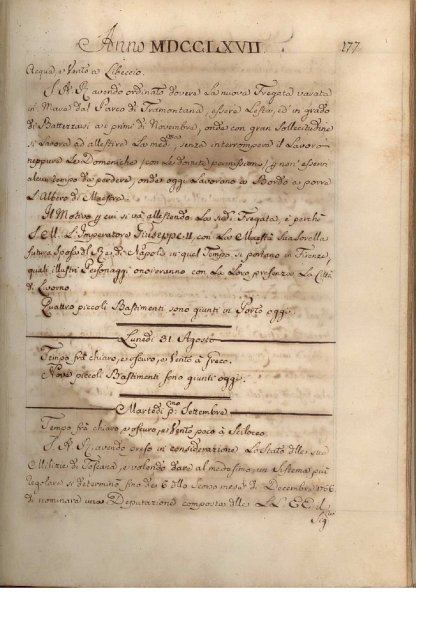 Anno MDCCLXVII
177
Acqua, e Vento a Libeccio.
S. A. R. avendo ordinato dovere la nuova Fregata varata
in Mare dal Parco di Tramontana, essere lesta, ed in grado
di Battezzarsi a i primi di Novembre, onde con gran sollecitudine
si lavora ad allestire la med.ma, senza interrompere il Lavoro
neppure le Domeniche (con le dovute permissioni) p non esservi
alcun tempo da perdere, onde oggi Lavorano a Bordo a porre
L'Albero di Maestra.
Il Motivo p cui si va allestendo La sud.a Fregata, è perchè
S. M. L'Imperatore Giuseppe II, con La Maestà sua Sorella
futura Sposa del Re di Napoli in quel Tempo si portano in Firenze,
quali illustri Personaggi onoreranno con La Loro presenza La Città
di Livorno.
Quattro piccoli Bastimenti sono giunti in Porto oggi.
Lunedì 31. Agosto
Tempo frà chiaro, e oscuro, e Vento à Greco.
Nove piccoli Bastimenti sono giunti oggi.
Martedì p.mo Settembre
Tempo frà chiaro e oscuro, e Vento poco à Scilocco.
S. A. R. avendo preso in considerazione Lo Stato delle sue
Milizie di Toscana, e volendo dare al medesimo, un Sistema più
regolare si determinò fino de 6 dello scorso mese di Decembre 1766
di nominare una Deputazione composta delle LL. EE. il
Sig.